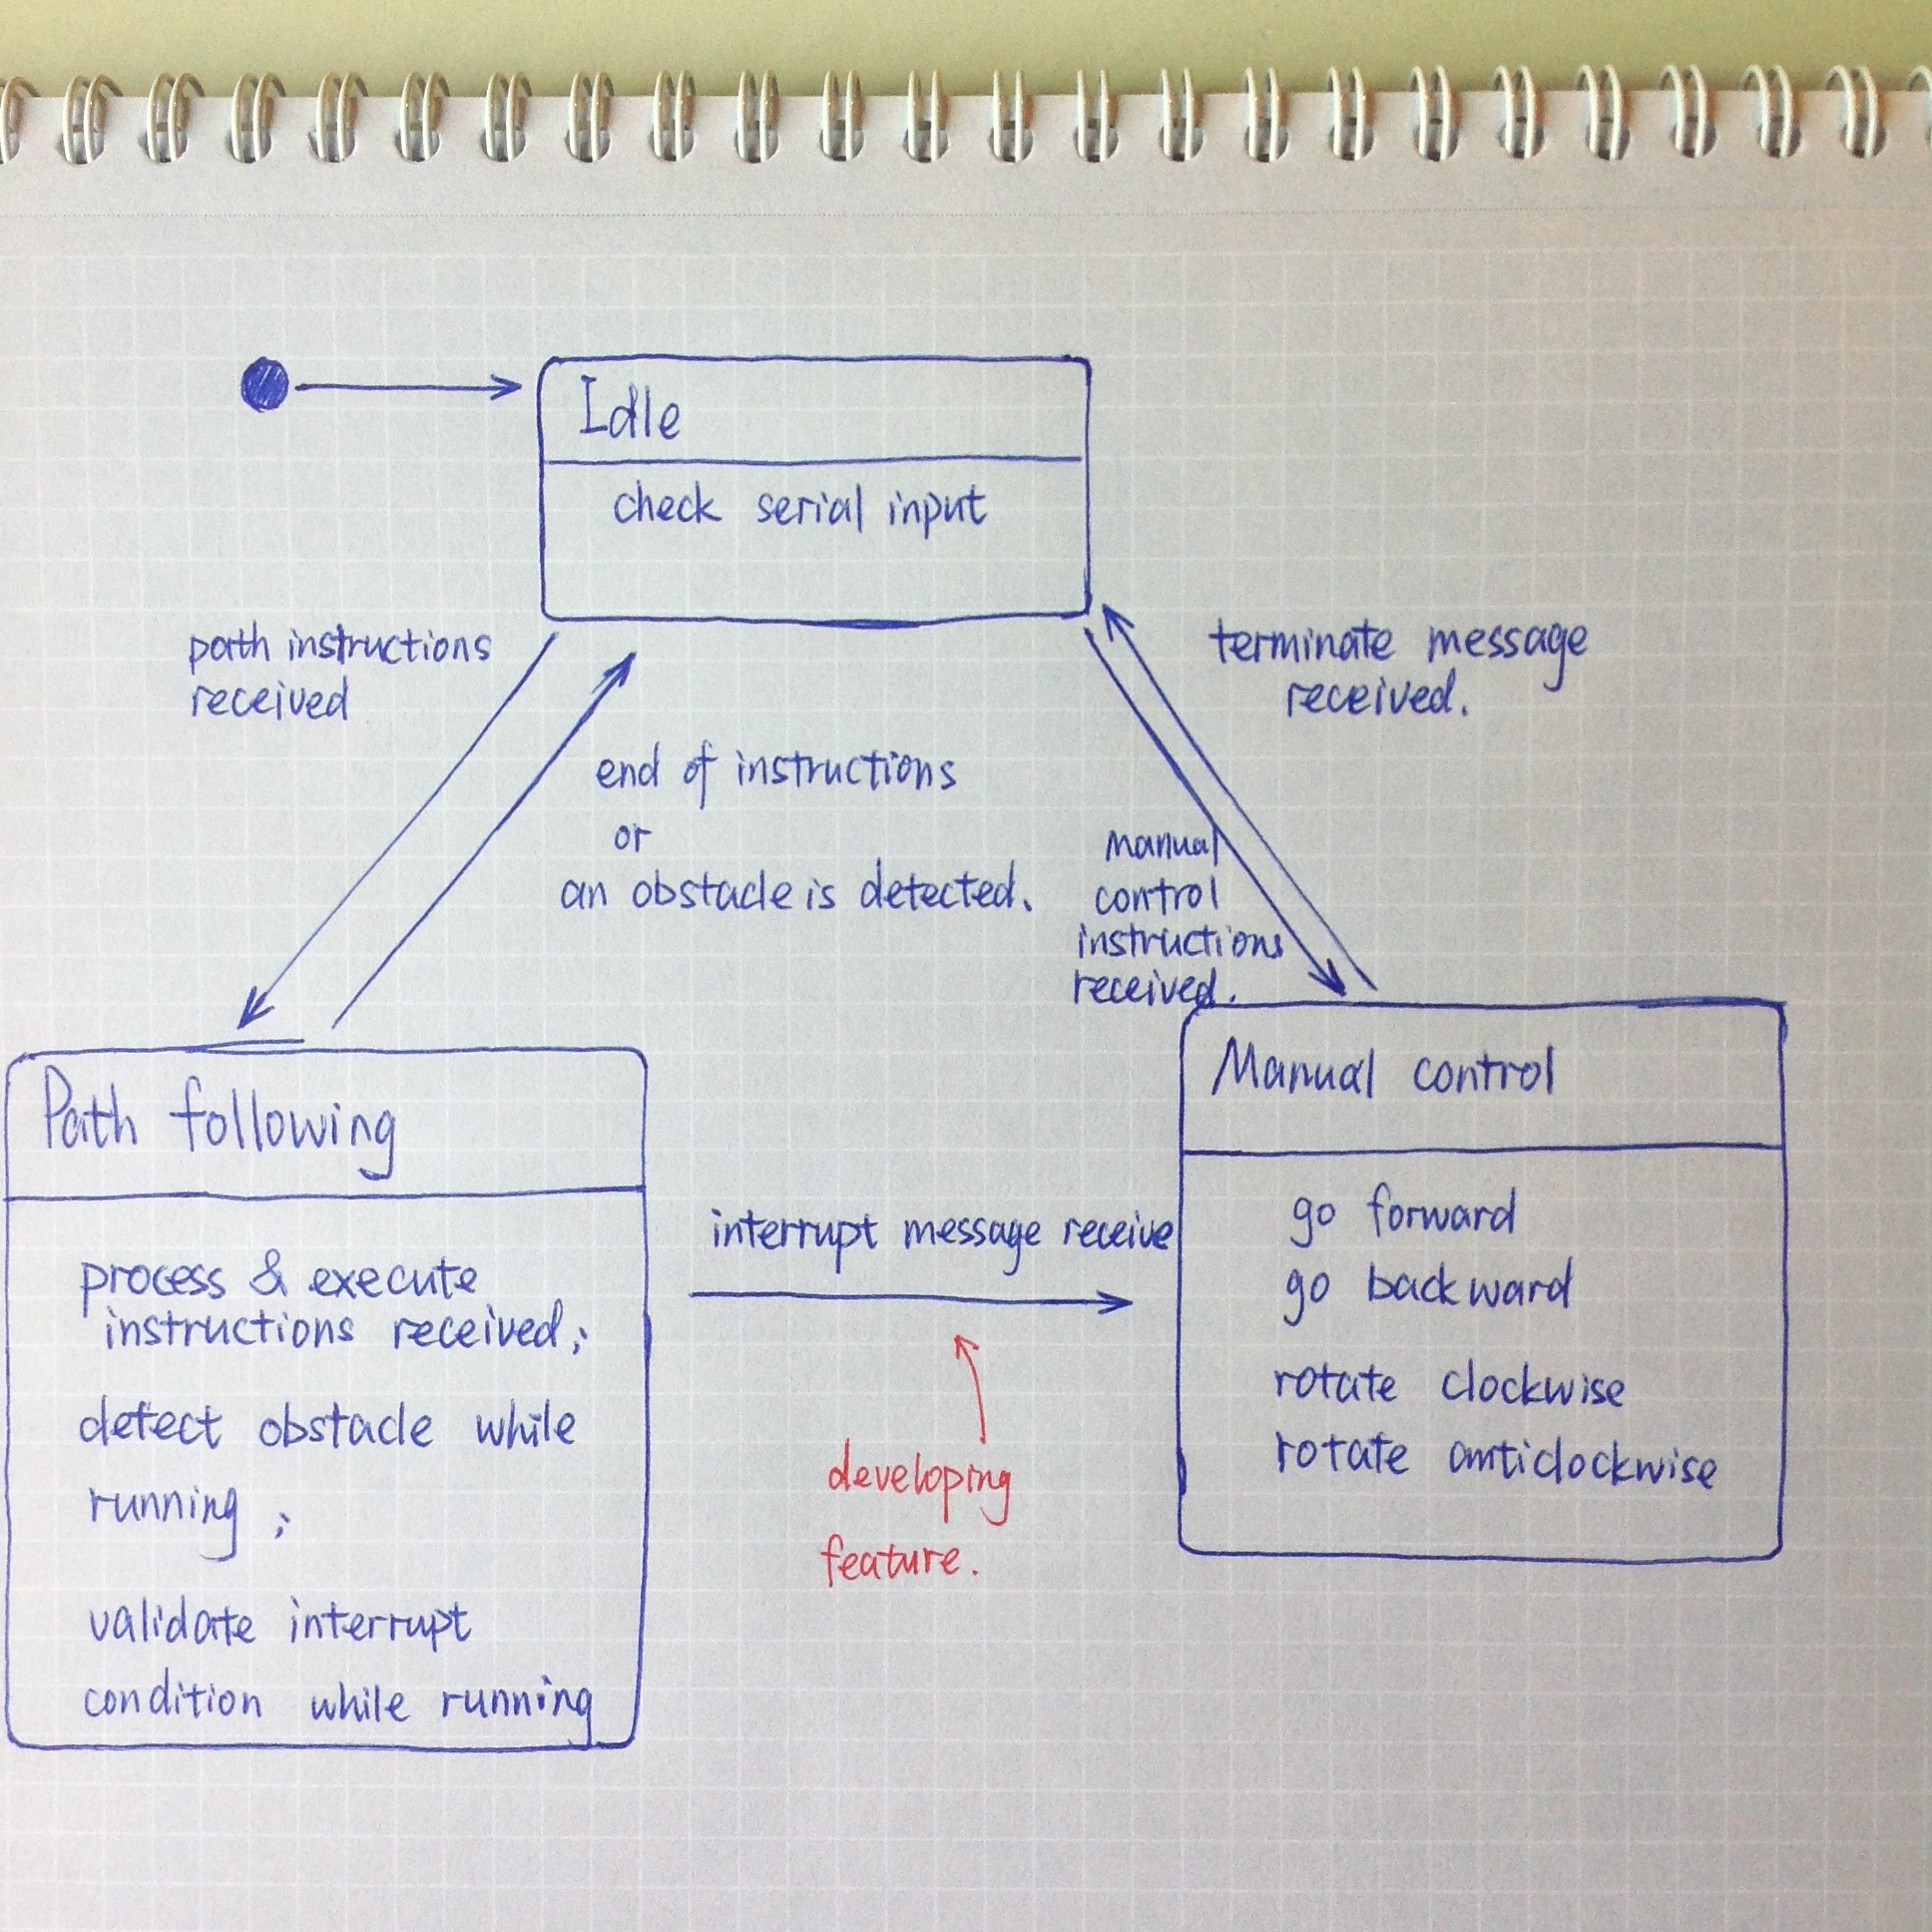 Idle
check serial input
path instructions
received
terminate message
received.
end of instructions
or
an obstacle is detected.
manual
control
instructions
received.
Path following
process & execute
instructions received;
detect obstacle while
running ;
validate interrupt
condition while running
interrupt message receive
developing
feature.
Manual control
go forward
go backward
rotate clockwise
rotate anticlockwise